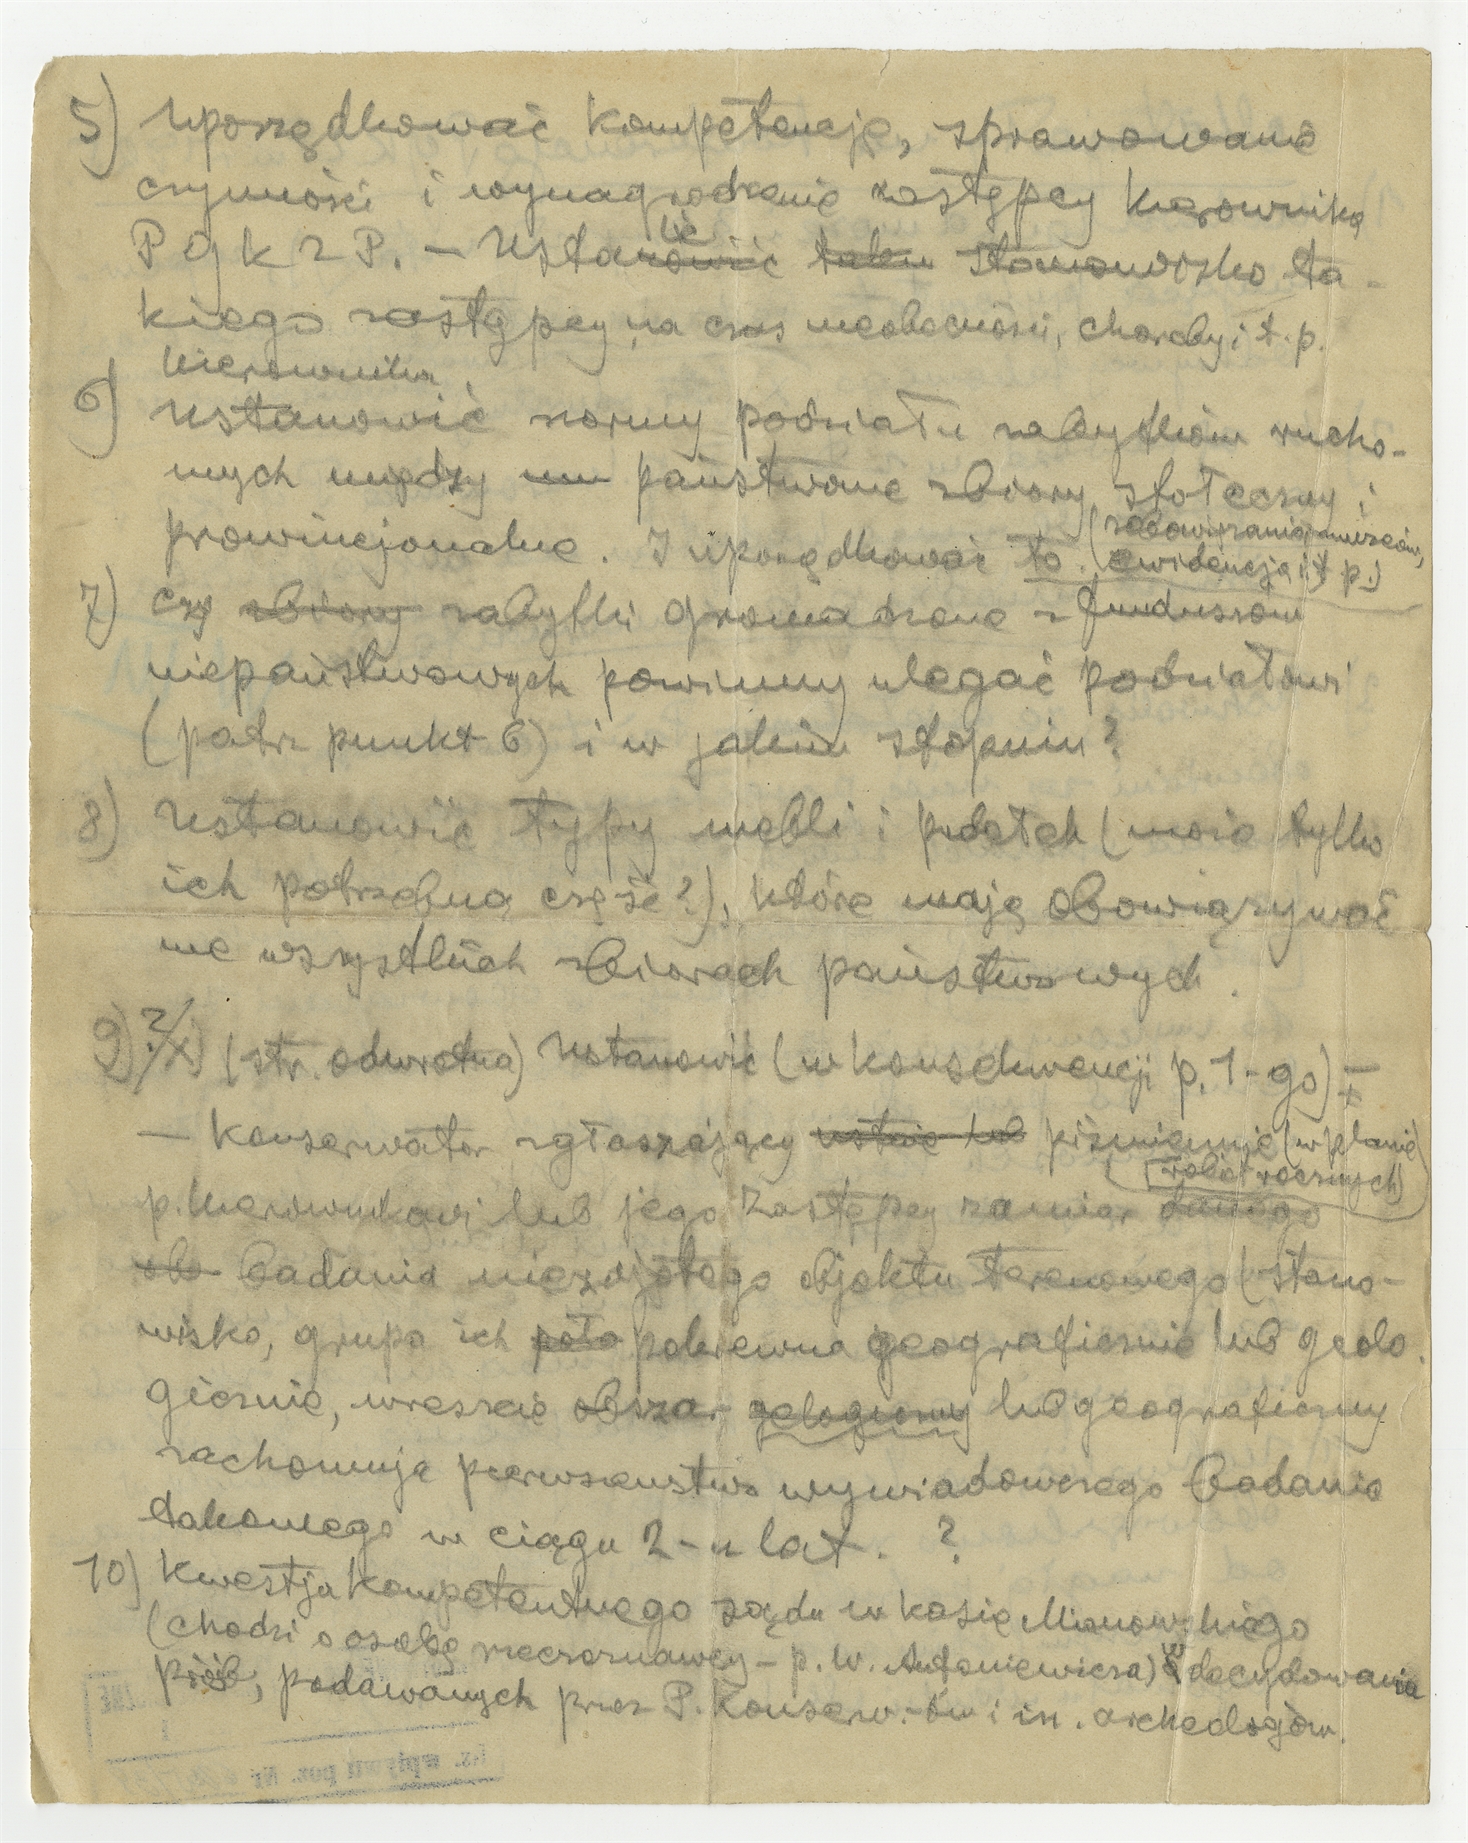 5) Uporządkować kompetencję, sprawowane
czynności i wynagrodzenie zastępcy kierownika
P G K Z P. – Ustanowić takie stanowisko ta-
kiego zastępcy na czas nieobecności, choroby i t. p.
kierownika.
6) Ustanowić normy podziału zabytków rucho-
mych między państwowe zbiory stołeczny i
prowincjonalne. I uporządkować to. (zobowiązania muzeów,
ewidencja i t p.)
7) czy zbiory zabytki gromadzone z funduszów
niepaństwowych powinny ulegać podziałowi
(patrz punkt 6) i w jakim stopniu?
8) Ustanowić typy mebli i pudełek (może tylko
ich potrzebną część?), które mają obowiązywać
we wszystkich zbiorach państwowych.
9) ?/x) (str. odwrotna) Ustanowić (w konsekwencji p. 1-go)
– Konserwator zgłaszający ustnie lub piśmiennie (w planie
robót rocznych)
p. kierownikowi lub jego zastępcy zamiar danego
badania niezajętego objektu terenowego (stano-
wisko, grupa ich poło pokrewna geograficznie lub geolo-
gicznie, wreszcie obszar geologiczny lub geograficzny
zachowuje pierwszeństwo wywiadowczego badania
takowego w ciągu 2-u lat. ?
10) Kwestja kompetentnego sądu w kasie Mianowskiego
(chodzi o osobę rzeczoznawcy – p. W. Antoniewicza) w decydowaniu
próśb, podawanych przez P. Konserw.-ów i in. archeologów.
Nr. wpływu poz. Nr